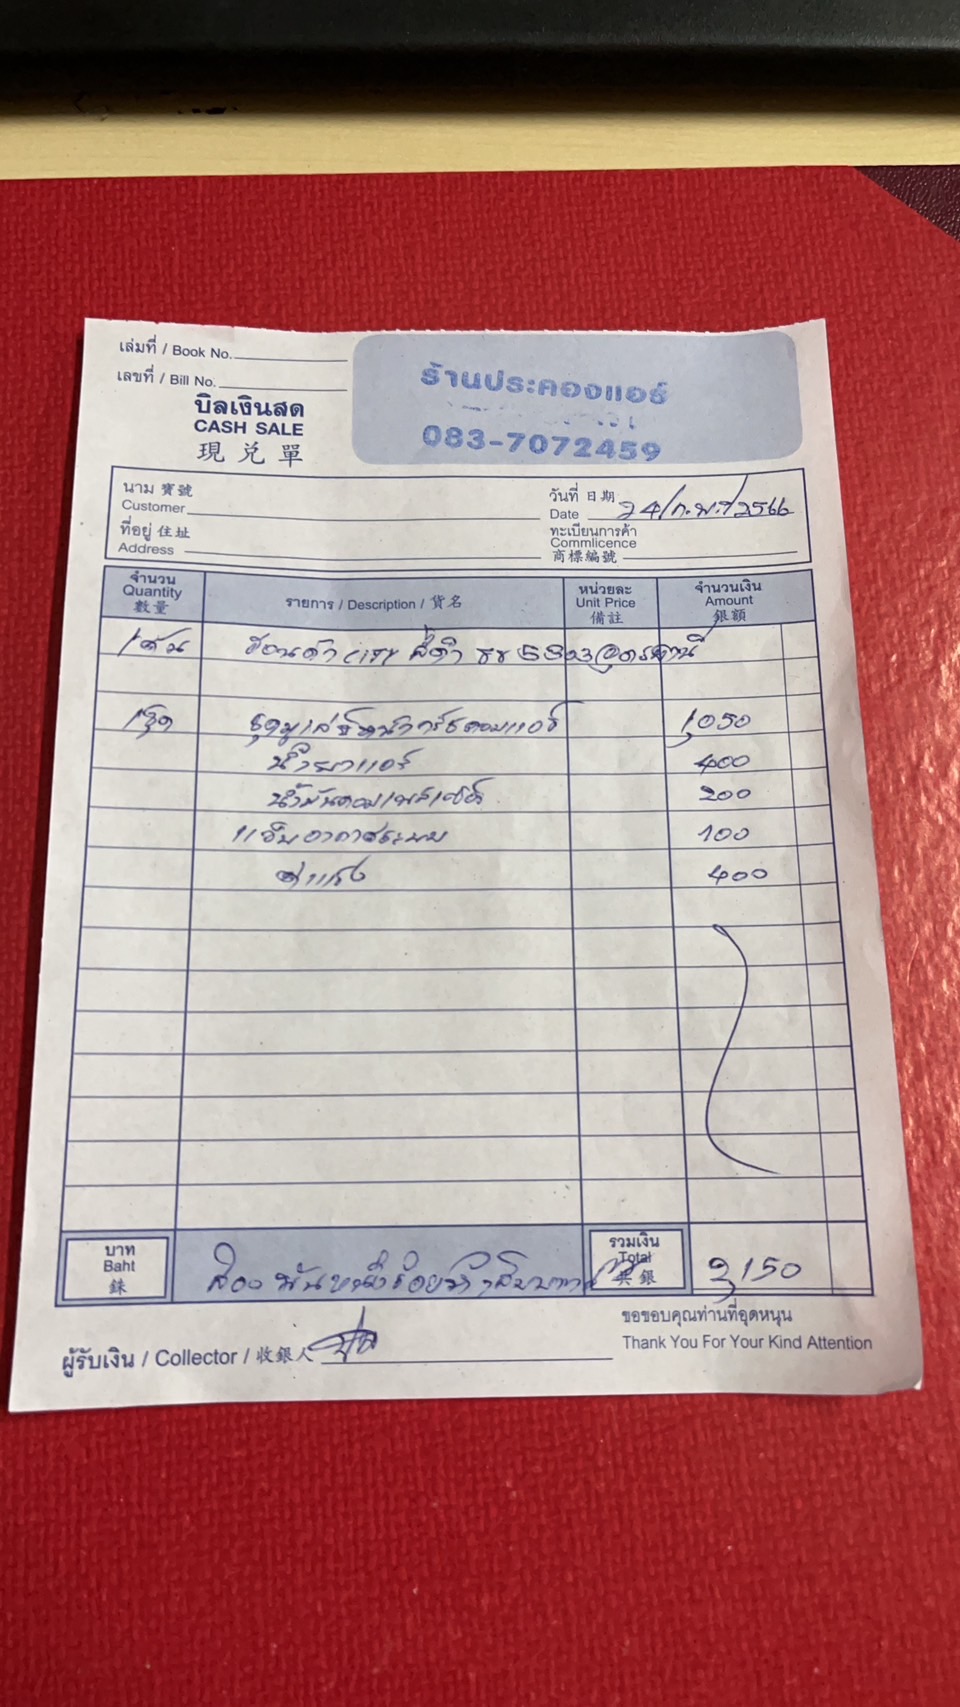 เล่มที่ / Book No.
เลขที่ / Bill No.
บิลเงินสด
CASH SALE
現兌單
ร้านประคองแอร์
083-7072459
นาม 寶號
Customer
วันที่ 日期
Date 24/ก.พ./2566
ที่อยู่ 住址
Address
ทะเบียนการค้า
Commlicence
商標編號
จำนวน
Quantity
數量
รายการ / Description / 貨名
หน่วยละ
Unit Price
備註
จำนวนเงิน
Amount
銀額
1 คัน ฮอนด้า CITY สีดำ อุดรธานี
1 ชุด 1,050
น้ำยาแอร์ 400
น้ำมันคอมเพลสเซอร์ 200
แว๊คอากาศระบบ 100
ค่าแรง 400
บาท
Baht
銖
สองพันหนึ่งร้อยห้าสิบบาท
รวมเงิน
Total
共銀
2,150
ขอขอบคุณท่านที่อุดหนุน
Thank You For Your Kind Attention
ผู้รับเงิน / Collector / 收銀人